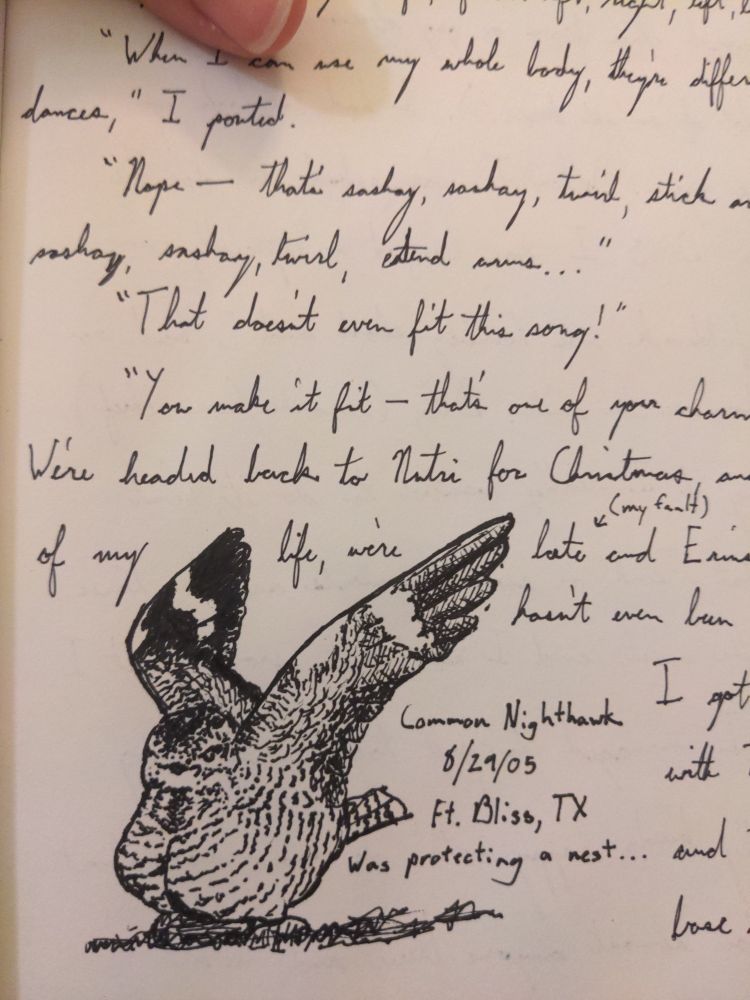 right, left,
"When I can use my whole body, they're differ
dances," I pouted.
"Nope — that's sashay, sashay, twirl, stick
sashay, sashay, twirl, extend arms..."
"That doesn't even fit this song!"
"You make it fit — that's one of your charm
We're headed back to Nutri for Christmas,
(my fault)
of my life, we're late and Erins
hasn't even been
I got
Common Nighthawk
8/29/05
with
Ft. Bliss, TX
Was protecting a nest... and
base